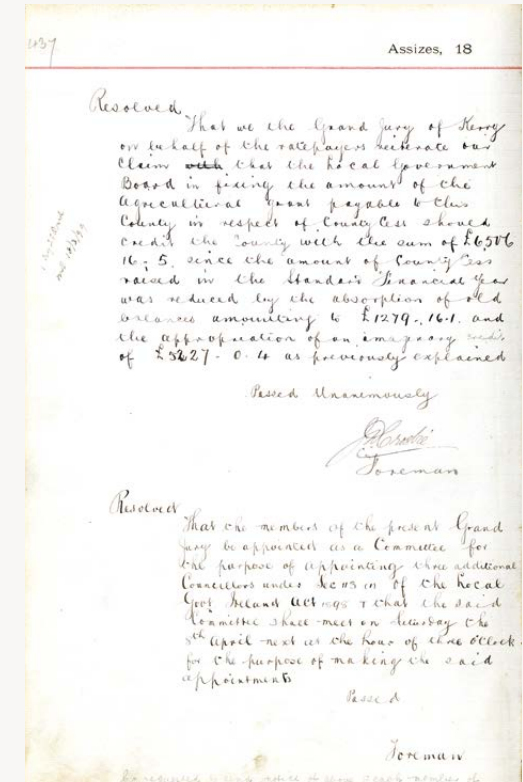 437
Assizes, 18
Resolved
That we the Grand Jury of Kerry
on behalf of the ratepayers reiterate our
Claim with that the Local Government
Board in fixing the amount of the
Agricultural grant payable to this
County in respect of County Cess should
credit the County with the sum of £6506
16. 5. since the amount of County Cess
raised in the Standard Financial Year
was reduced by the absorption of old
balances amounting to £1279. 16. 1. and
the appropriation of an imaginary credit
of £5227. 0. 4 as previously explained
Passed Unanimously
Crosbie
Foreman
Resolved
That the members of the present Grand
Jury be appointed as a Committee for
the purpose of appointing three additional
Councillors under Sec 113 of the Local
Govt Ireland Act 1898 & that the said
Committee shall meet on Saturday the
8th April next at the hour of three O'Clock
for the purpose of making the said
appointments
Passed
Foreman